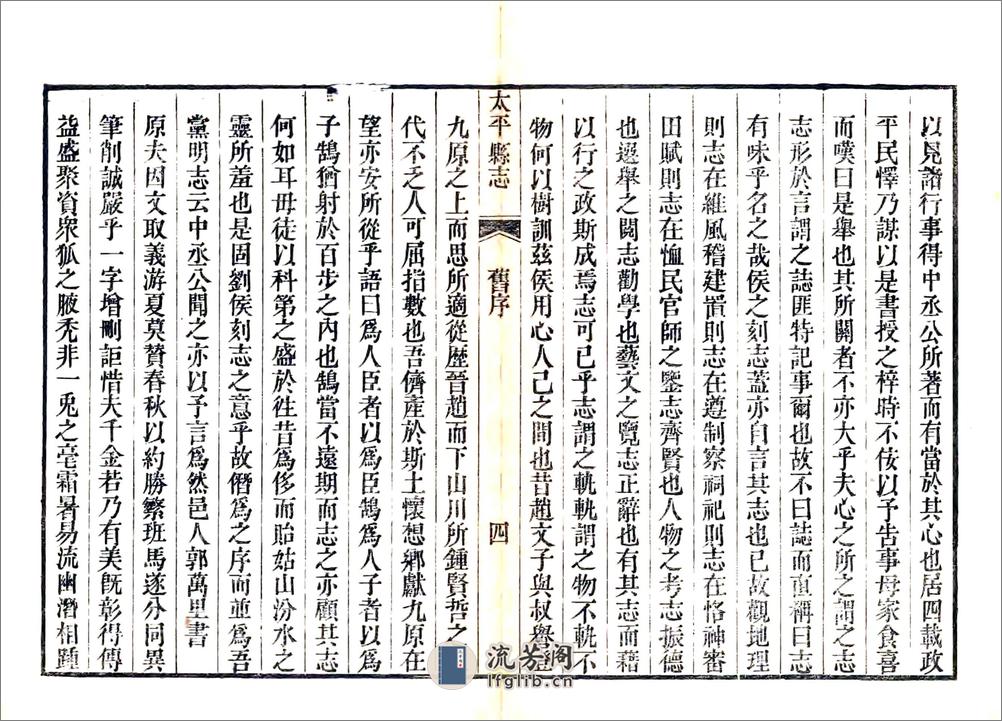 以見諸行事得中丞公所著而有當於其心也居四載政
平民懌乃謀以是書授之梓時不佞以予告事母家食喜
而嘆曰是舉也其所關者不亦大乎夫心之所之謂之志
志形於言謂之誌匪特記事爾也故不曰誌而直稱曰志
有味乎名之哉侯之刻志蓋亦自言其志也已故觀地理
則志在維風稽建置則志在遵制察祠祀則志在恪神審
田賦則志在恤民官師之鑒志齊賢也人物之考志振德
也選舉之闕志勸學也藝文之覽志正辭也有其志而藉
以行之政斯成焉志可已乎志謂之軌軌謂之物不軌不
物何以樹訓茲侯用心人己之間也昔趙文子與叔譽遊
太平縣志
舊序
四
九原之上而思所適從歷晉趙而下山川所鍾賢哲之
代不乏人可屈指數也吾儕產於斯土懷想鄉獻九原在
望亦安所從乎語曰為人臣者以為臣鵠為人子者以為
子鵠猶射於百步之內也鵠當不遠期而志之亦顧其志
何如耳毋徒以科第之盛於徃昔為侈而貽姑山汾水之
靈所羞也是固劉侯刻志之意乎故僭為之序而並為吾
黨明志云中丞公聞之亦以予言為然邑人郭萬里書
原夫因文取義游夏莫贊春秋以約勝繁班馬遂分同異
筆削誠嚴乎一字增刪詎惜夫千金若乃有美旣彰得傳
益盛聚資眾狐之腋禿非一兎之毫霜暑易流幽潛相踵
流芳阁
lfglib.cn